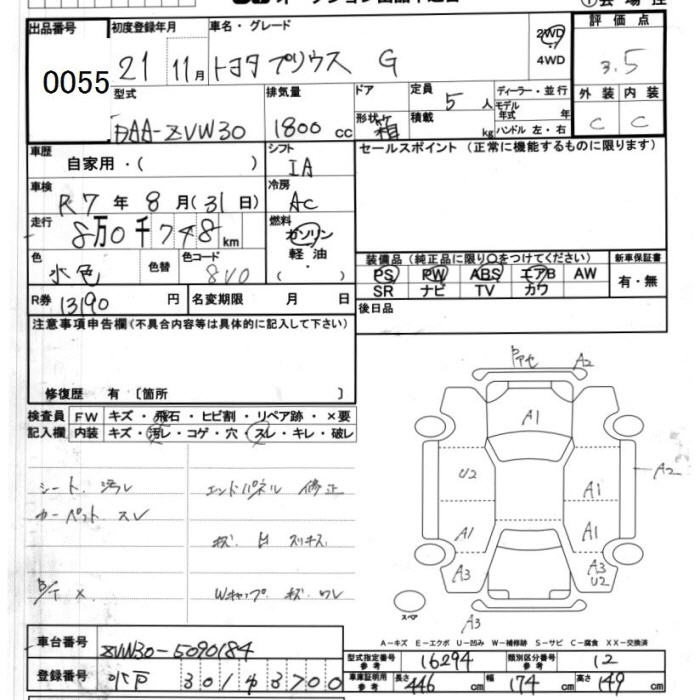 出品番号 初度登録年月 車名・グレード 2WD 4WD 評価点
0055 21 11月 トヨタ プリウス G 3.5
型式 排気量 ドア 定員 5 人 ディーラー・並行 外装 内装
DAA-ZVW30 1800 cc 形状 箱 積載 kg モデル年式 年 ハンドル 左・右 C C
車歴 自家用・( ) シフト IA セールスポイント (正常に機能するものに限ります)
車検 R7 年 8 月 (31 日) 冷房 AC
走行 8万0千748 km 燃料 ガソリン 軽油 ・ ( )
色 水色 色替 色コード 8V0
装備品 (純正品に限り○をつけてください) 新車保証書
PS PW ABS エアB AW 有・無
SR ナビ TV カワ
R券 13190 円 名変期限 月 日 後日品
注意事項申告欄 (不具合内容等は具体的に記入して下さい)
修復歴 有 〔箇所 〕
検査員 FW キズ・飛石・ヒビ割・リペア跡・×要
記入欄 内装 キズ・汚レ・コゲ・穴・スレ・キレ・破レ
シート 汚レ エンドパネル 修正
カーペット スレ
キズ H スリキズ
B/T × Wキャップ キズ ワレ
A2
A1
U2 A1 A2
A1 A1
A3 A3 U2
スペア A3
A-キズ E-エクボ U-凹み W-補修跡 S-サビ C-腐食 XX-交換済
車台番号 ZVW30-5090184
型式指定番号 参考 16294 類別区分番号 参考 12
登録番号 水戸 301 ・3700
車庫証明用 参考 長さ 446 cm 幅 174 cm 高さ 149 cm